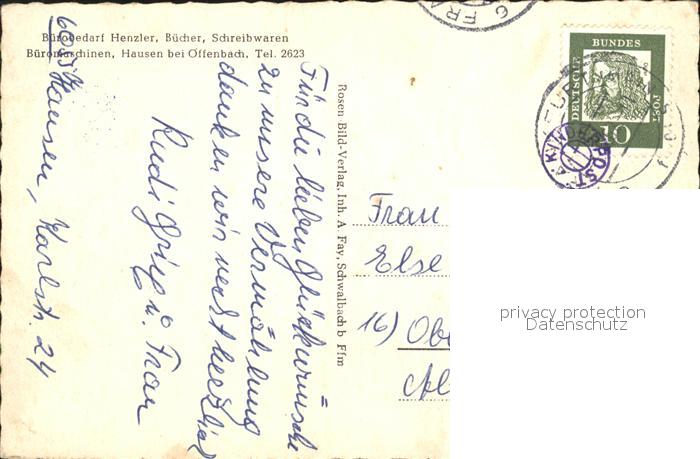 Bürobedarf Henzler, Bücher, Schreibwaren
Büromaschinen, Hausen bei Offenbach, Tel. 2623
Für die lieben Glückwünsche
zu unsere Vermählung
danken wir recht herzlich
Rudi u. Frau
6051 Hausen, Karlstr. 24
Rosen Bild-Verlag, Inh. A. Fay, Schwalbach b Ffm
Frau
Else
16) Obe
DEUTSCHE
BUNDES
POST
10
KINDERPOST
privacy protection
Datenschutz